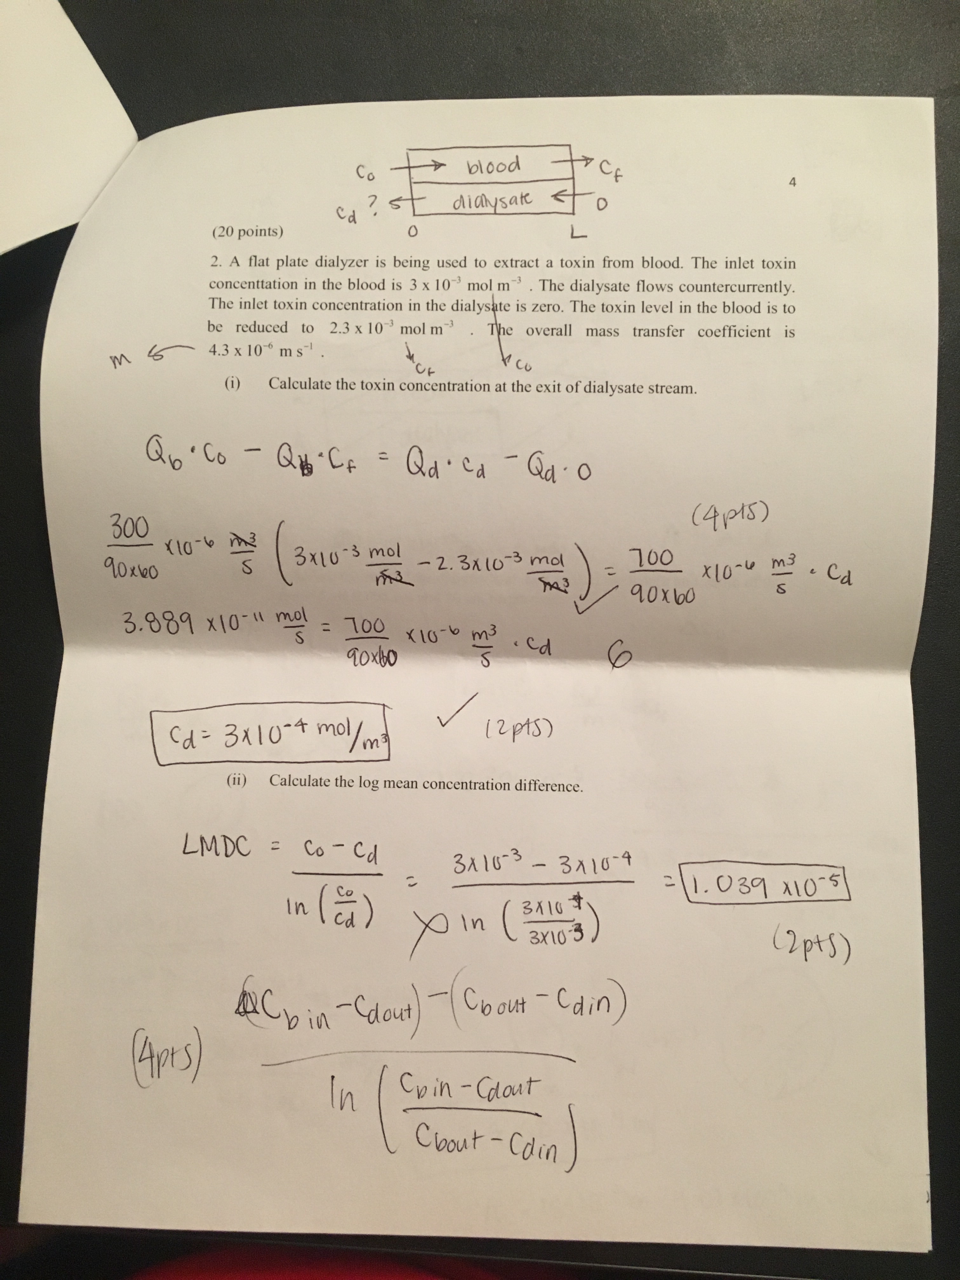 C₀ → blood → Cf
4
Cd ? ← dialysate ← 0
0 L
(20 points)
2. A flat plate dialyzer is being used to extract a toxin from blood. The inlet toxin
concenttation in the blood is 3 x 10⁻³ mol m⁻³ . The dialysate flows countercurrently.
The inlet toxin concentration in the dialysate is zero. The toxin level in the blood is to
be reduced to 2.3 x 10⁻³ mol m⁻³ . The overall mass transfer coefficient is
m ← 4.3 x 10⁻⁶ m s⁻¹ .
Cf C₀
(i) Calculate the toxin concentration at the exit of dialysate stream.
Qb · C₀ − Qb · Cf = Qd · Cd − Qd · 0
(4pts)
300/90x60 x10⁻⁶ m³/s (3x10⁻³ mol/m³ − 2.3x10⁻³ mol/m³) = 700/90x60 x10⁻⁶ m³/s · Cd
3.889 x10⁻¹¹ mol/s = 700/90x60 x10⁻⁶ m³/s · Cd ✓ 6
Cd = 3x10⁻⁴ mol/m³ ✓ (2pts)
(ii) Calculate the log mean concentration difference.
LMDC = C₀ − Cd / ln (C₀/Cd) = 3x10⁻³ − 3x10⁻⁴ / ln (3x10⁻⁴/3x10⁻³) = 1.039 x10⁻⁵
(2pts)
(Cb in − Cdout) − (Cbout − Cdin)
(4pts)
ln (Cbin − Cdout / Cbout − Cdin)